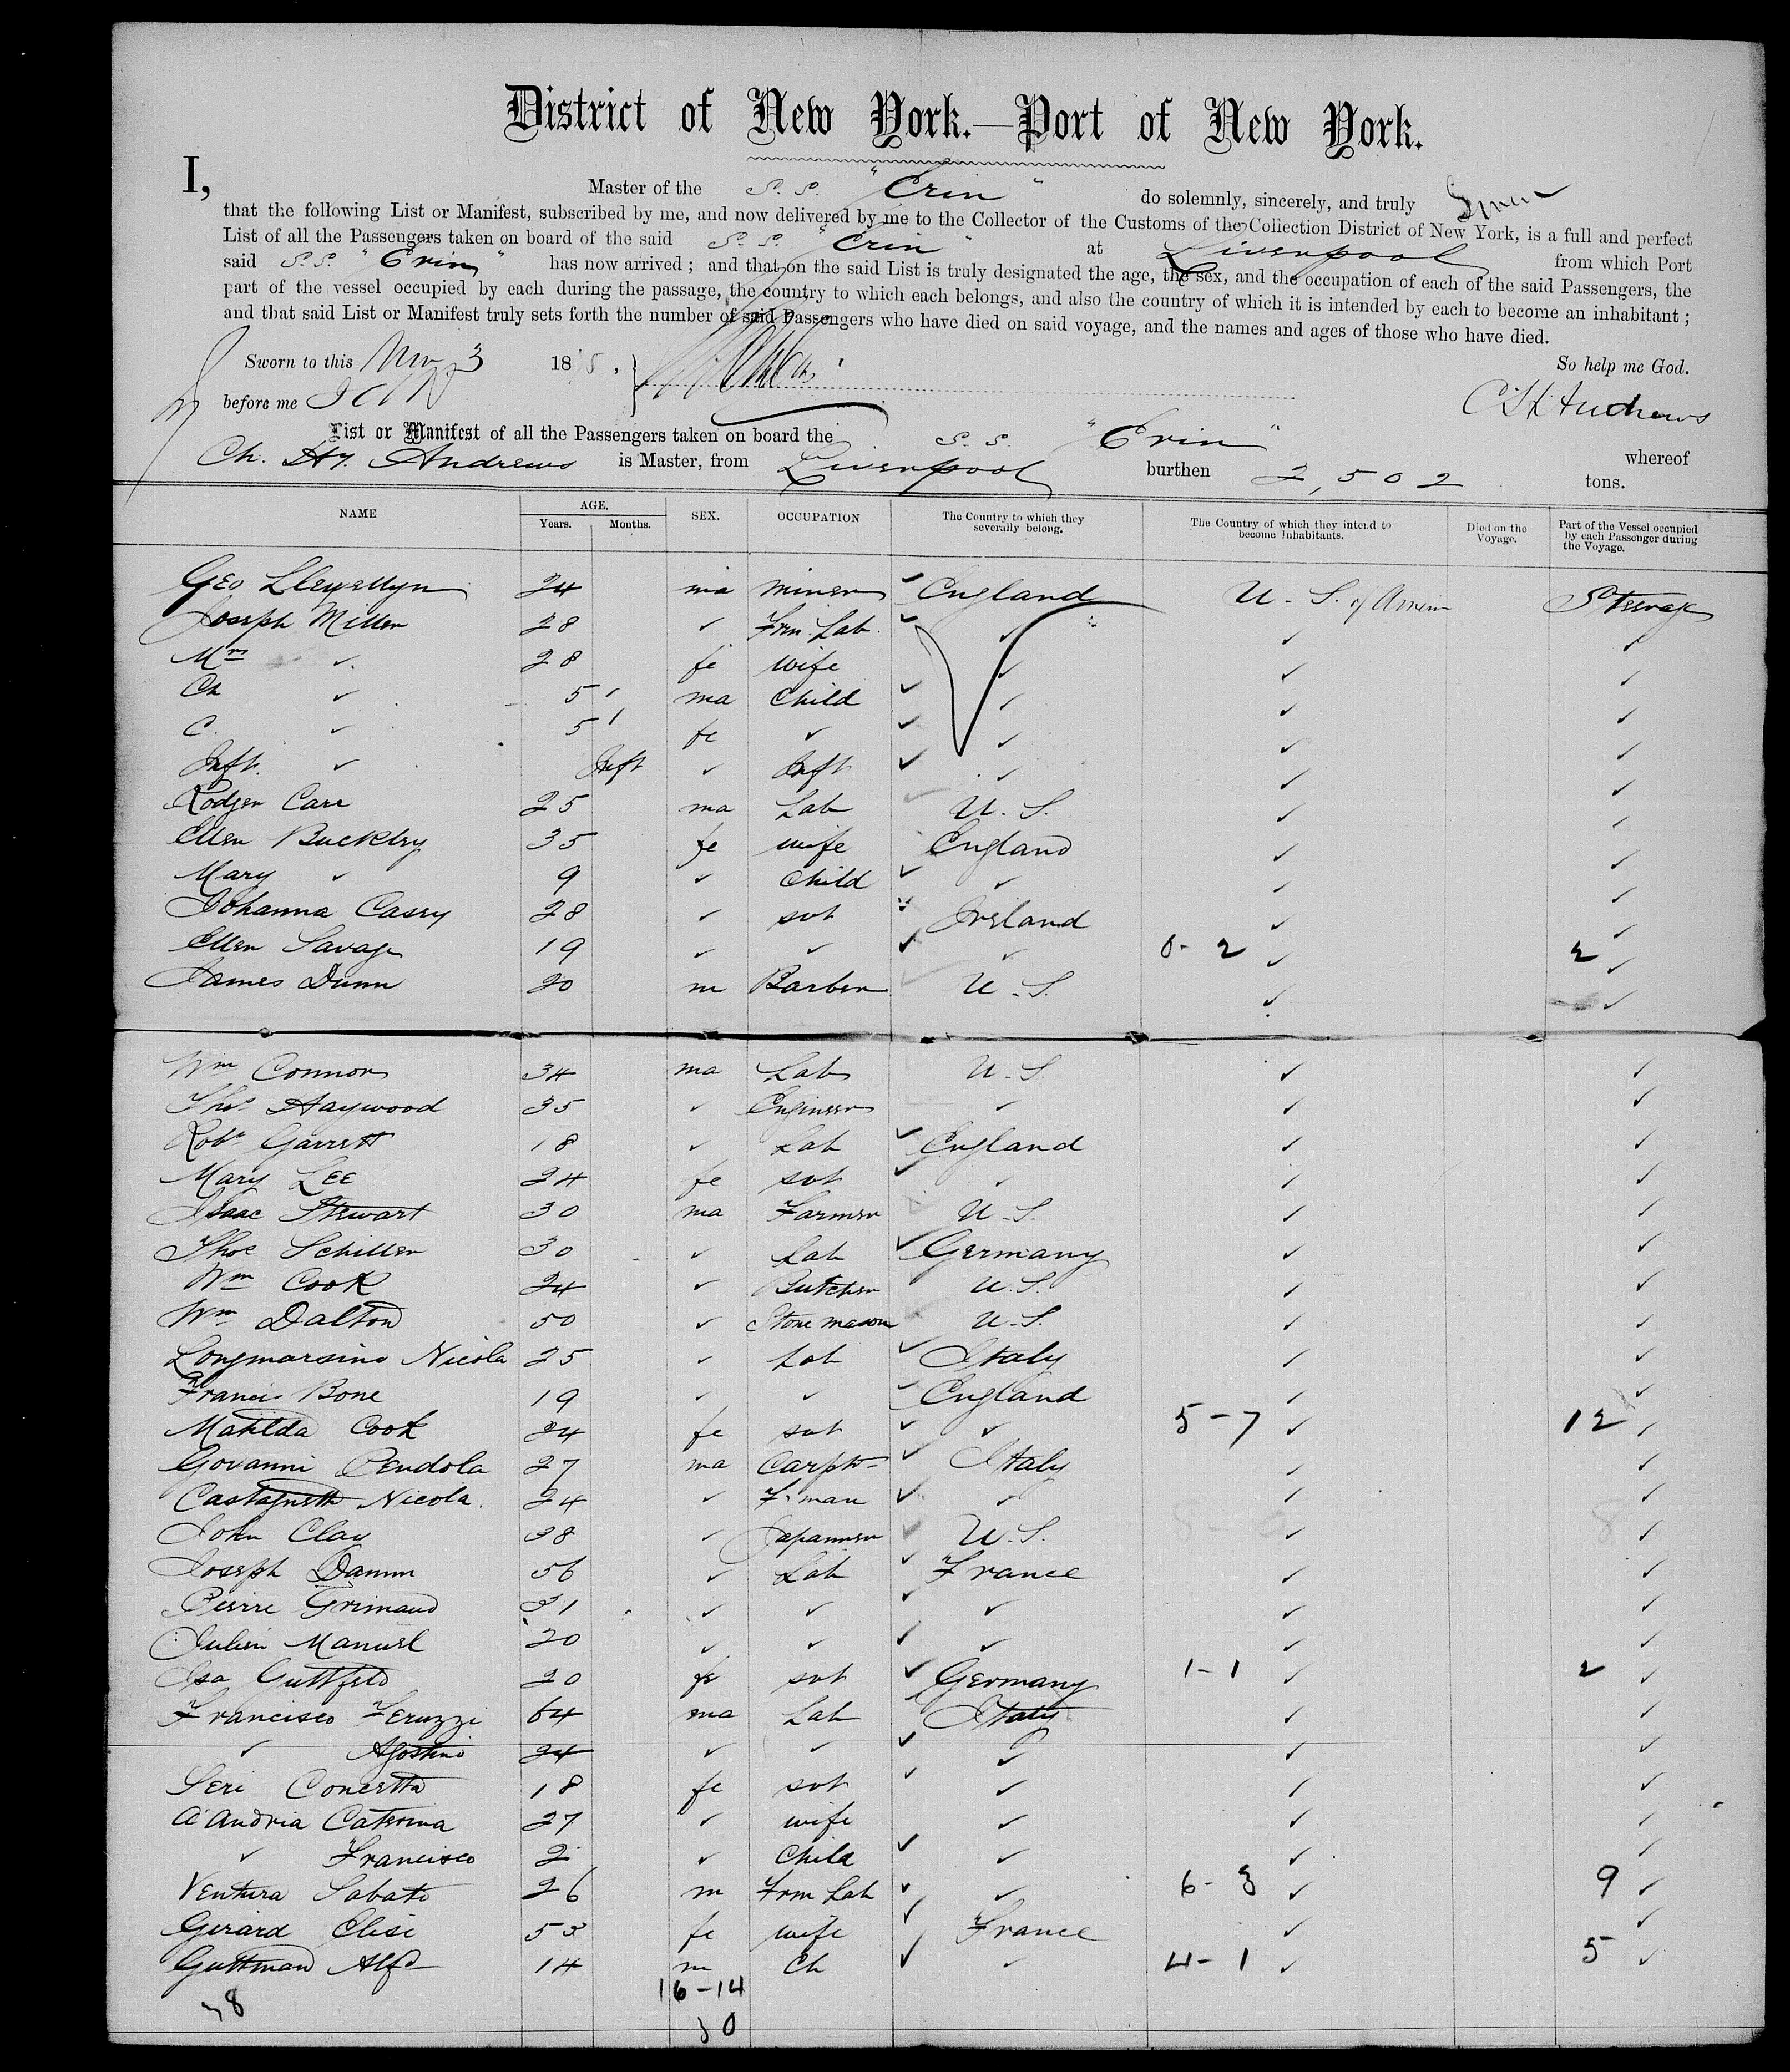 District of New York.—Port of New York.
I, Master of the S. S. "Erin" do solemnly, sincerely, and truly
that the following List or Manifest, subscribed by me, and now delivered by me to the Collector of the Customs of the Collection District of New York, is a full and perfect
List of all the Passengers taken on board of the said S. S. "Erin" at Liverpool from which Port
said S. S. "Erin" has now arrived; and that on the said List is truly designated the age, the sex, and the occupation of each of the said Passengers, the
part of the vessel occupied by each during the passage, the country to which each belongs, and also the country of which it is intended by each to become an inhabitant;
and that said List or Manifest truly sets forth the number of said Passengers who have died on said voyage, and the names and ages of those who have died.
Sworn to this Nov 3 187 So help me God.
before me C H Andrews
List or Manifest of all the Passengers taken on board the S. S. "Erin" whereof
Ch. Hy. Andrews is Master, from Liverpool burthen 2,502 tons.
NAME AGE. Years. Months. SEX. OCCUPATION The Country to which they severally belong. The Country of which they intend to become Inhabitants. Died on the Voyage. Part of the Vessel occupied by each Passenger during the Voyage.
Geo Llewellyn 24 ma miner ✓ England U. S. of Steerage
Joseph Miller 28 ✓ Frm. Lab. ✓ ✓ ✓ ✓
Mrs ✓ 28 fe wife ✓ ✓ ✓
Ch ✓ 5 ma Child ✓ ✓ ✓ ✓
C. ✓ 5 fe ✓ ✓ ✓ ✓ ✓
Inft. ✓ Inft ✓ Inft ✓ ✓ ✓ ✓
Rodger Carr 25 ma Lab U. S. ✓ ✓
Ellen Buckley 35 fe wife England ✓ ✓
Mary ✓ 9 ✓ Child ✓ ✓ ✓ ✓
Johanna Casey 28 ✓ svt Ireland ✓ ✓
Ellen Savage 19 ✓ ✓ ✓ ✓ 0-2 ✓ 2 ✓
James Dunn 20 m Barber U. S. ✓ ✓
Wm Connor 34 ma Lab U. S. ✓ ✓
Thos Haywood 35 ✓ Engineer ✓ ✓ ✓
Robt Garrett 18 ✓ Lab ✓ England ✓ ✓
Mary Lee 24 fe svt ✓ ✓ ✓ ✓
Isaac Stewart 30 ma Farmer U. S. ✓ ✓
Thos Schiller 30 ✓ Lab ✓ Germany ✓ ✓
Wm Cook 24 ✓ Butcher U. S. ✓ ✓
Wm Dalton 50 ✓ Stone mason U. S. ✓ ✓
Longmarsino Nicola 25 ✓ Lab ✓ Italy ✓ ✓
Francis Bone 19 ✓ ✓ ✓ England ✓ ✓
Matilda Cook 24 fe svt ✓ ✓ 5-7 ✓ 12 ✓
Govanni Pendola 27 ma Carptr ✓ Italy ✓ ✓
Castagnetti Nicola. 24 ✓ F'man ✓ ✓ ✓ ✓
John Clay 38 ✓ Japanner ✓ U. S. ✓ ✓
Joseph Damm 56 ✓ Lab ✓ France ✓ ✓
Pierre Grimaud 31 ✓ ✓ ✓ ✓ ✓ ✓
Julien Manuel 20 ✓ ✓ ✓ ✓ ✓ ✓
Isa Guttfeld 20 fe svt ✓ Germany 1-1 ✓ 2 ✓
Francisco Feruzzi 64 ma Lab Italy ✓ ✓
✓ Agostino 24 ✓ ✓ ✓ ✓ ✓ ✓
Seri Concetta 18 fe svt ✓ ✓ ✓ ✓
A'Andria Caterina 27 ✓ wife ✓ ✓ ✓
✓ Francisco 2 ✓ Child ✓ ✓ ✓ ✓
Ventura Sabato 26 m Frm Lab ✓ ✓ 6-3 ✓ 9 ✓
Gerard Elise 53 fe wife ✓ France ✓ ✓
Guttman Alfd 14 m Ch ✓ ✓ 4-1 ✓ 5 ✓
38 16-14
30